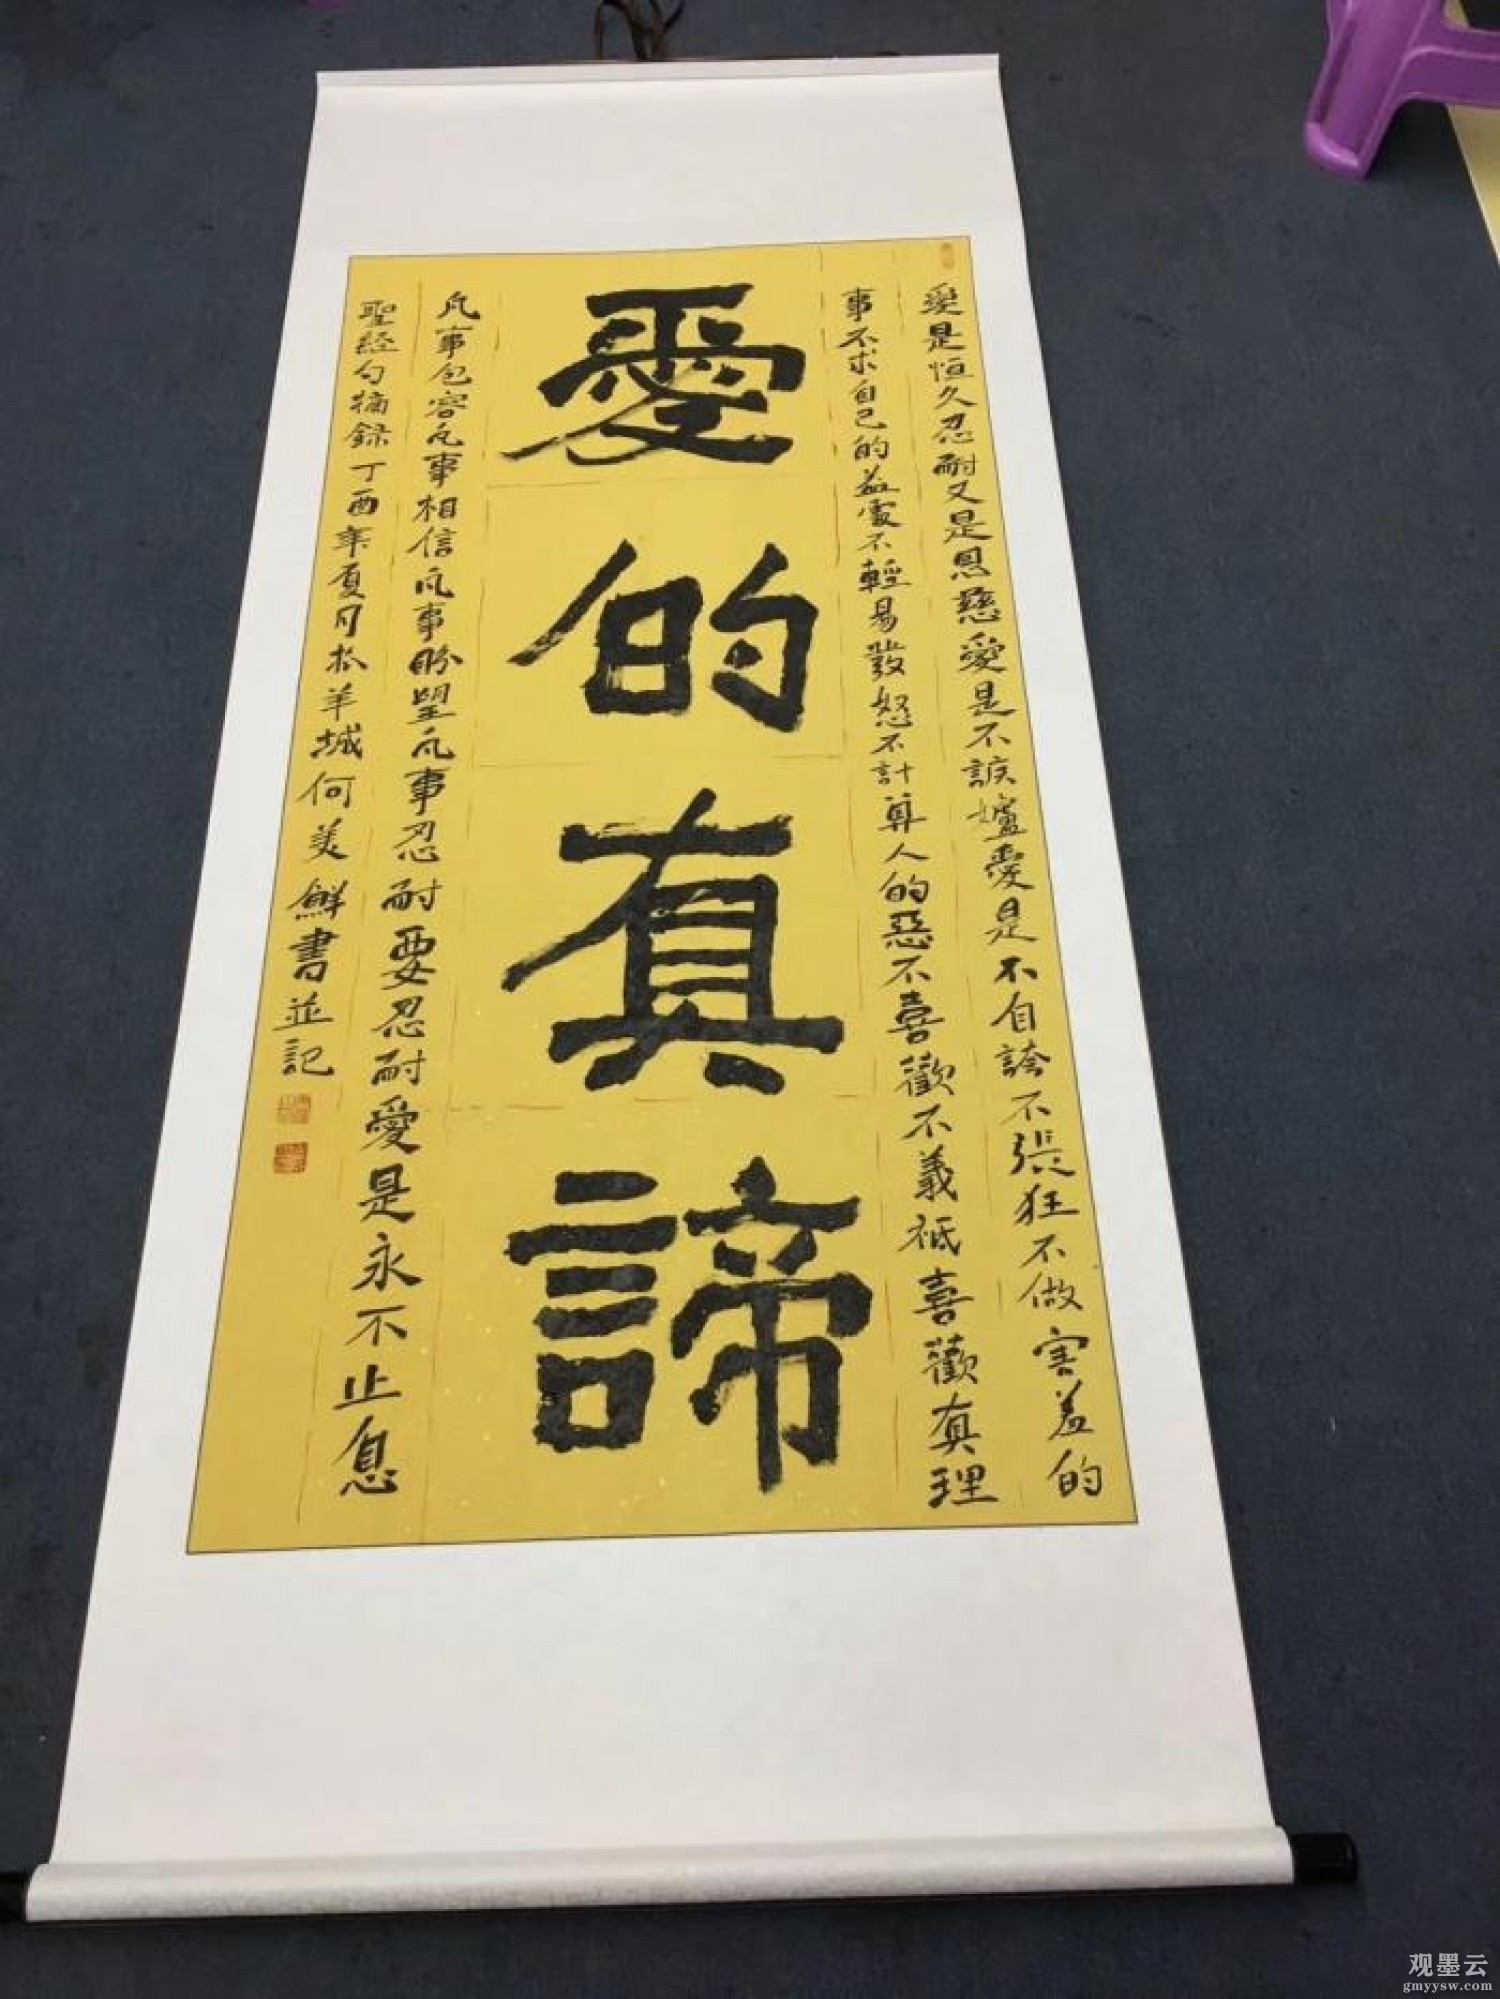 愛是恒久忍耐又是恩慈愛是不愛是不自誇不張狂不做害羞的
事不求自己的益處不輕易發怒不計算人的惡不喜歡不義祇喜歡真理
愛的真諦
凡事包容凡事相信凡事盼望凡事忍耐要忍耐愛是永不止息
聖经句摘録丁酉年夏月於羊城何美鮮書並記
观墨云
gmyysw.com